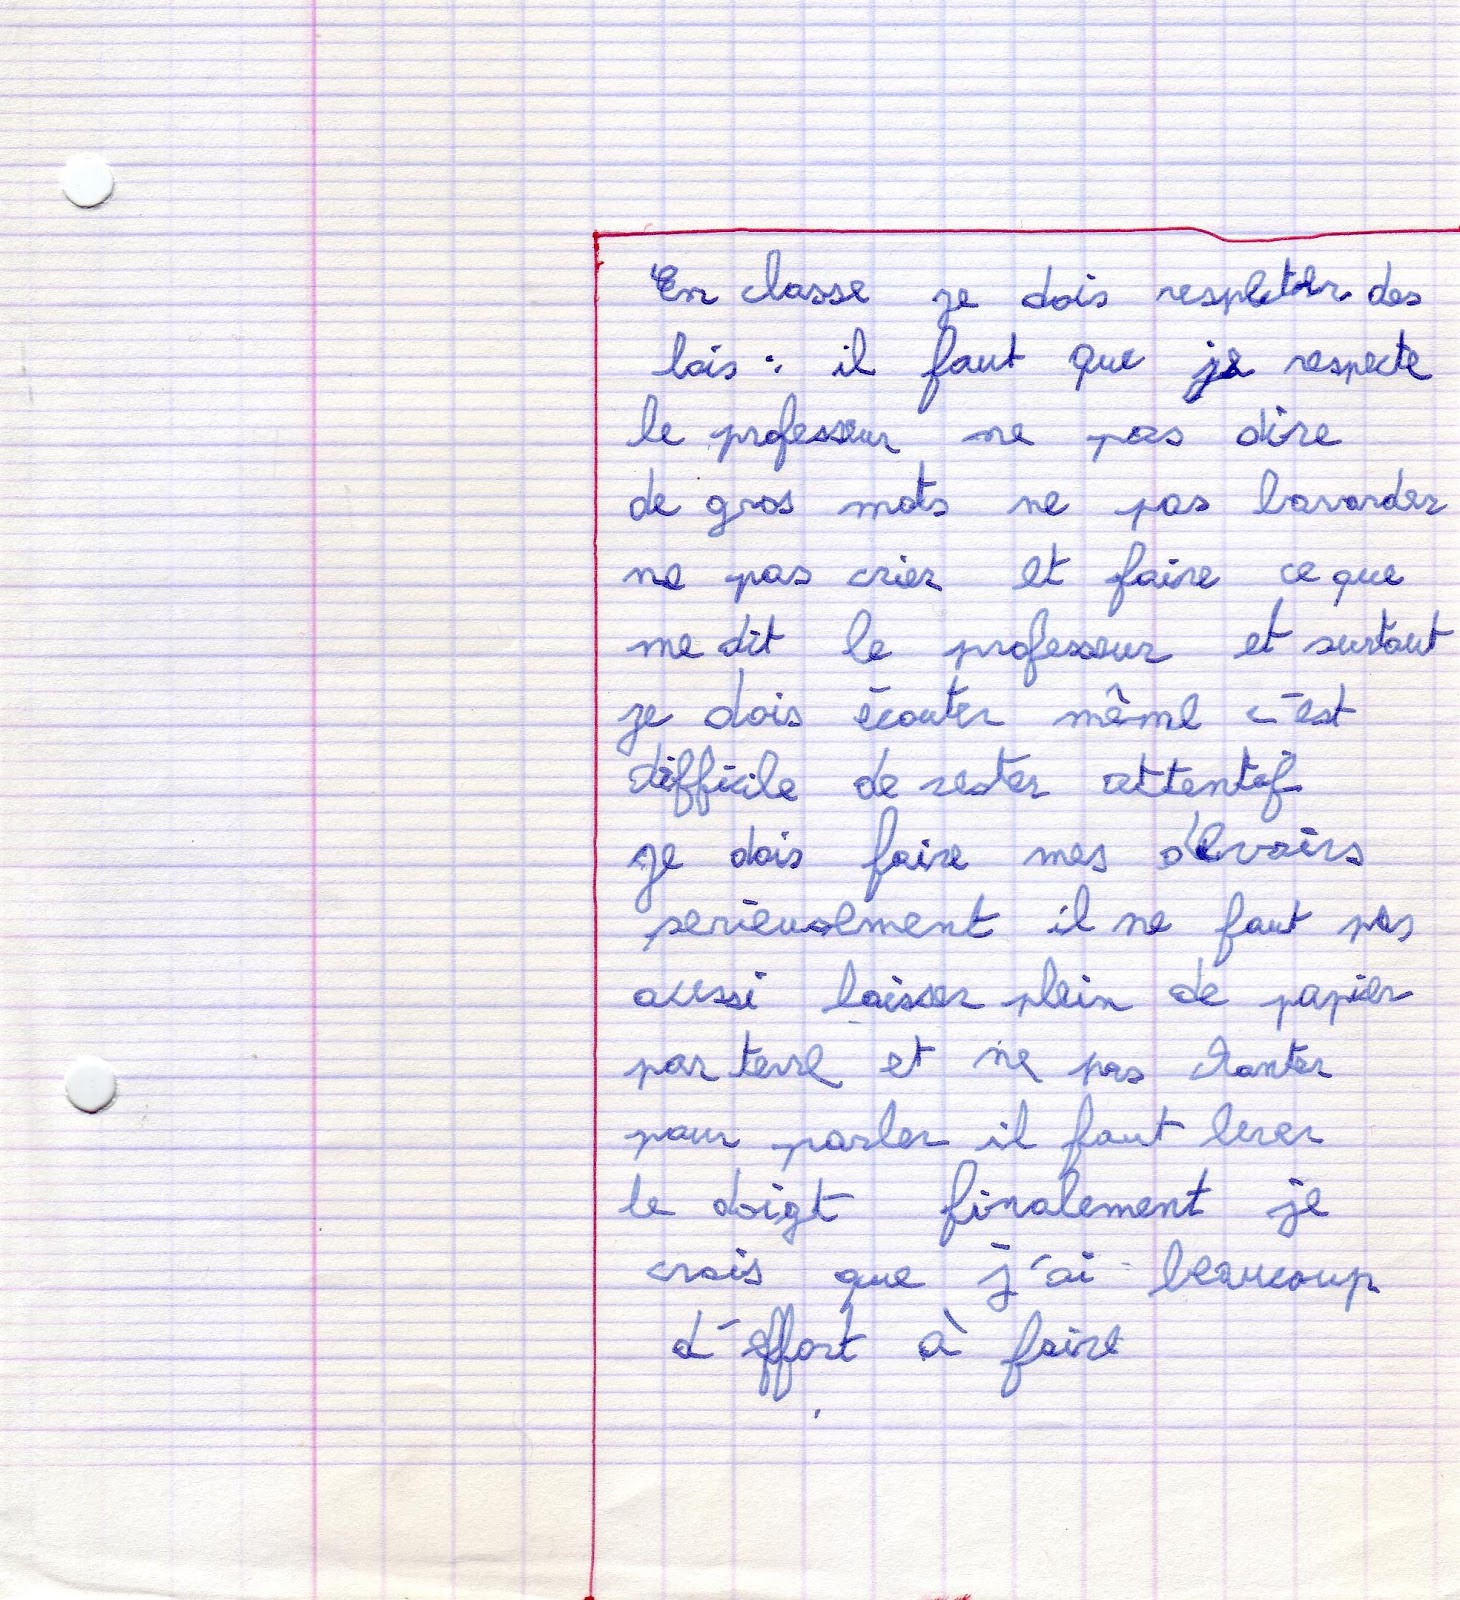 En classe je dois respecter des
lois : il faut que je respecte
le professeur ne pas dire
de gros mots ne pas bavarder
ne pas crier et faire ce que
me dit le professeur et surtout
je dois écouter même c'est
difficile de rester attentif
je dois faire mes devoirs
serieusement il ne faut pas
aussi laisser plein de papier
par terre et ne pas chanter
pour parler il faut lever
le doigt finalement je
crois que j'ai beaucoup
d'effort à faire